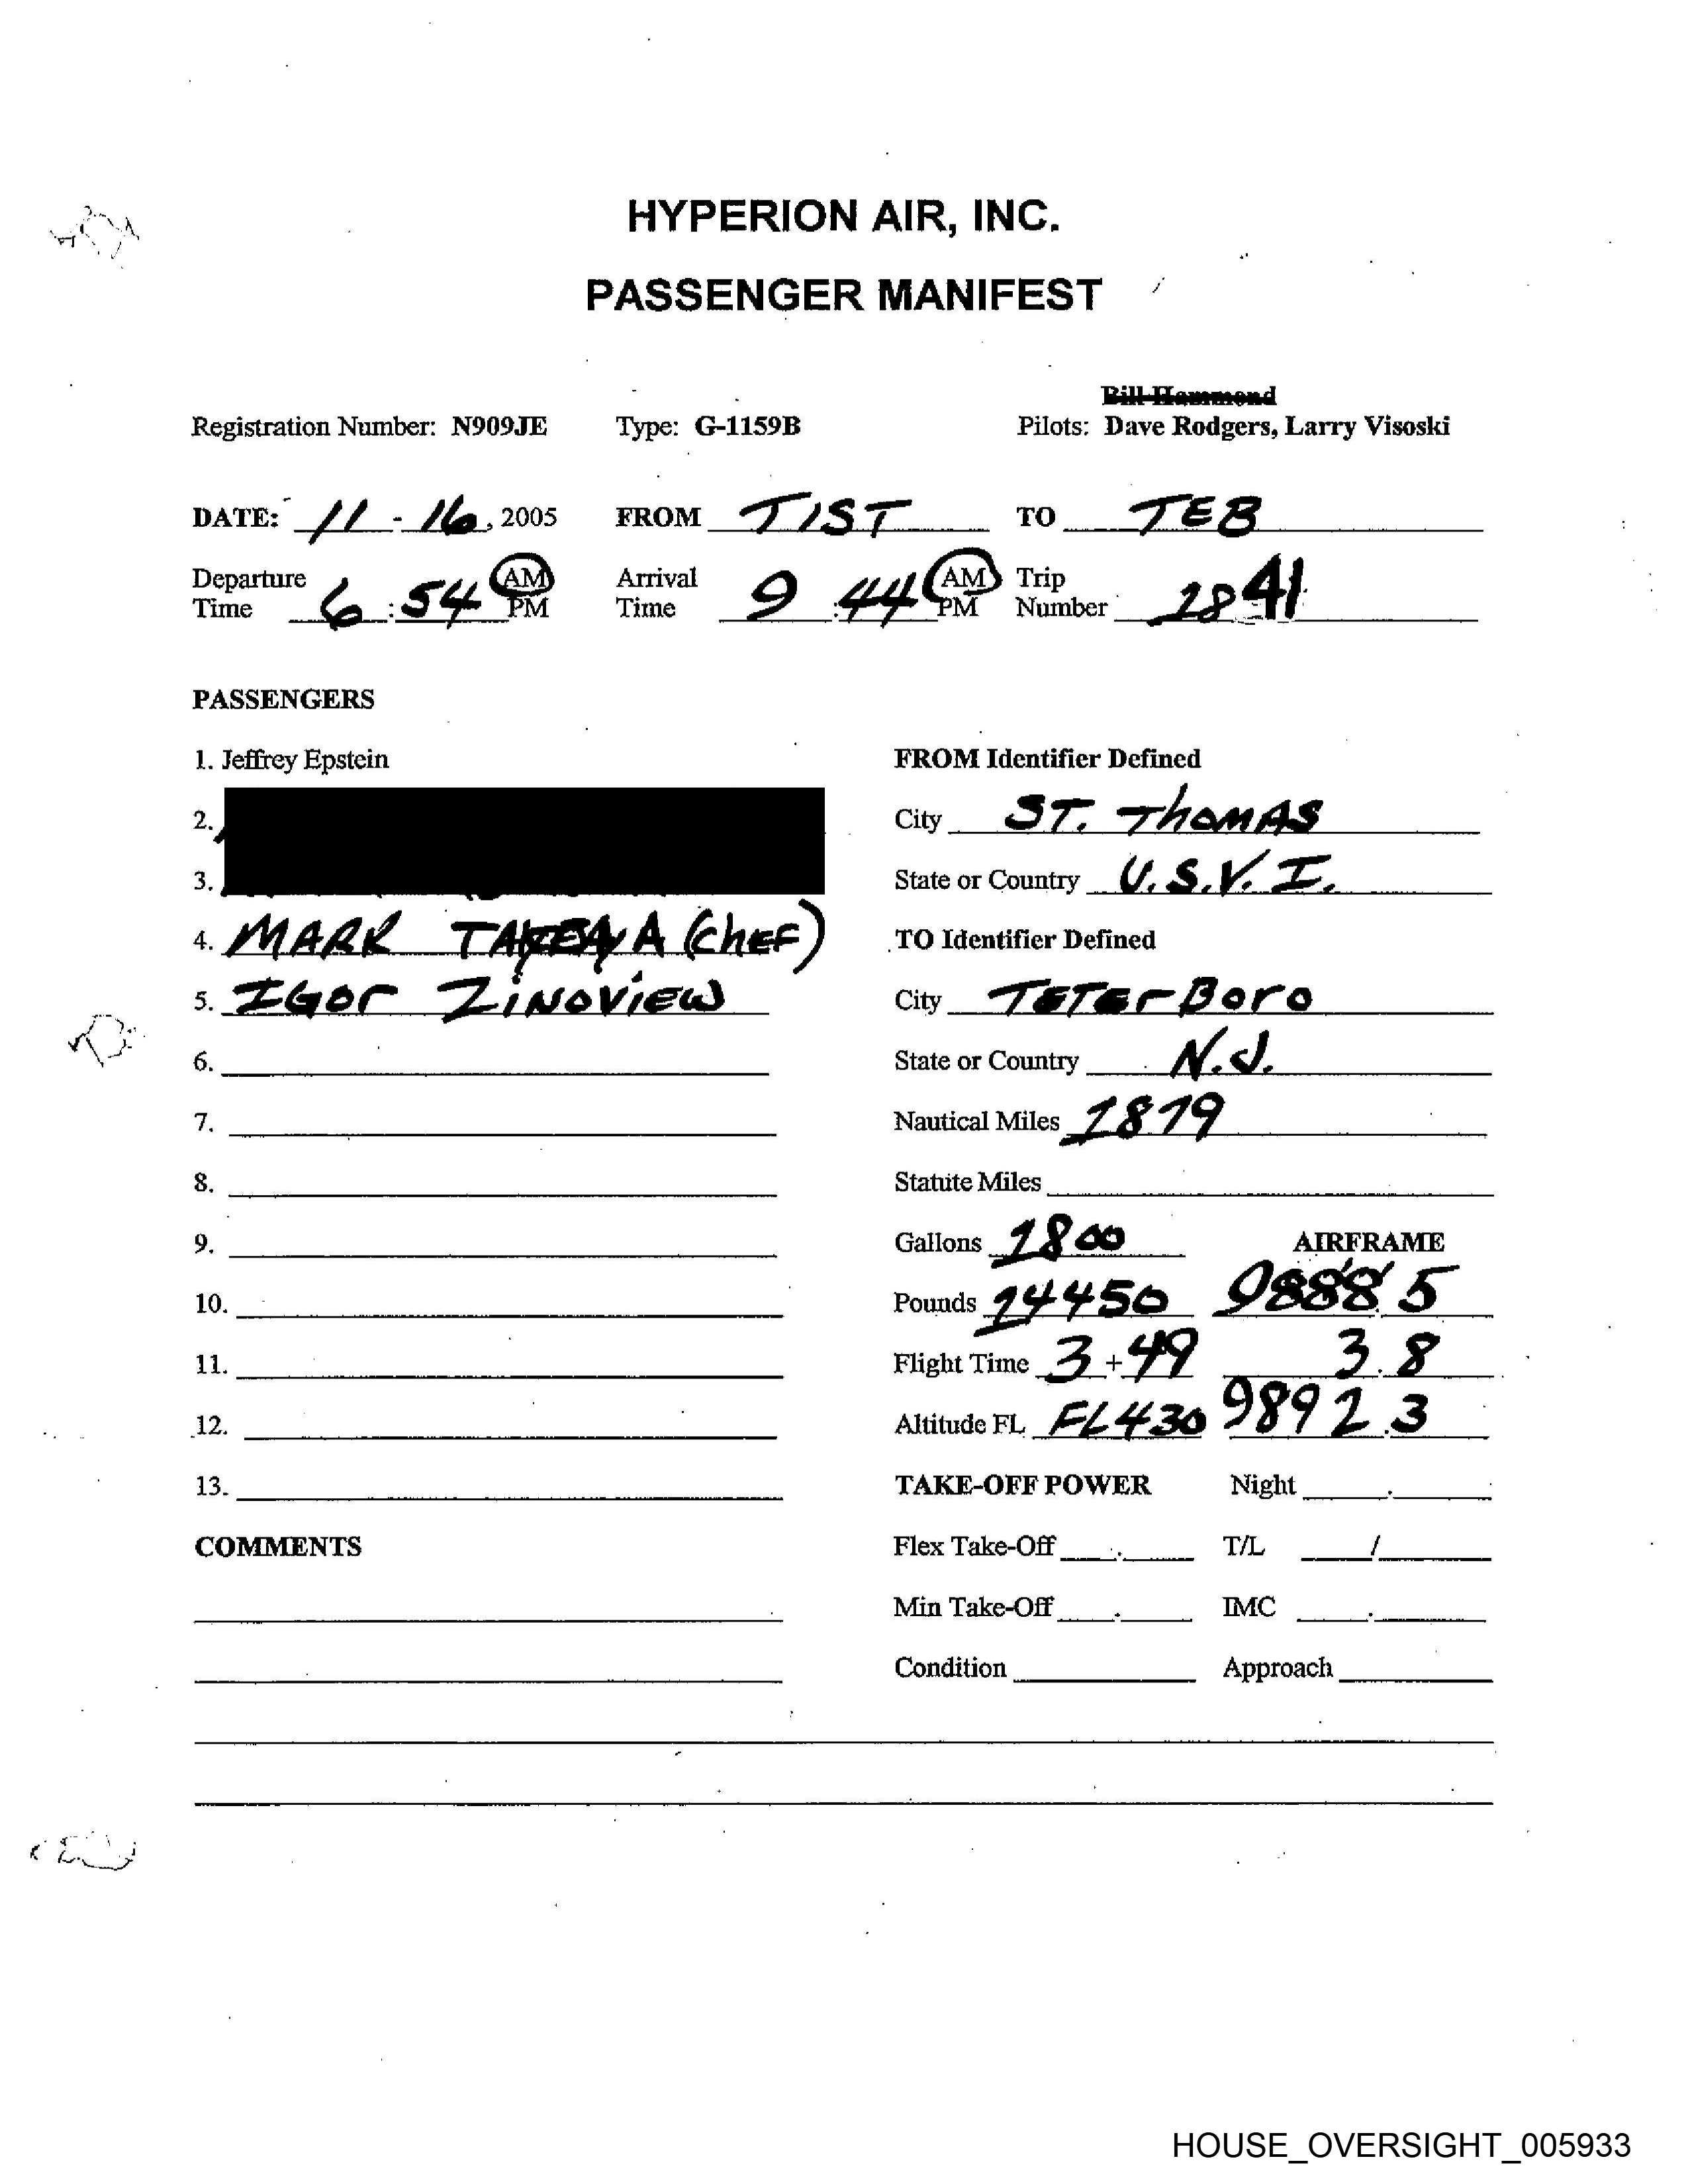 HYPERION AIR, INC.
PASSENGER MANIFEST
Bill Hammond
Registration Number: N909JE Type: G-1159B Pilots: Dave Rodgers, Larry Visoski
DATE: 11 - 16, 2005 FROM TIST TO TEB
Departure Time 6:54 AM PM Arrival Time 9:44 AM PM Trip Number 1841
PASSENGERS
1. Jeffrey Epstein FROM Identifier Defined
2. City ST. THOMAS
3. State or Country U.S.V.I.
4. MARK (CHEF) TO Identifier Defined
5. IGOR ZINOVIEW City TETERBORO
6. State or Country N.J.
7. Nautical Miles 1879
8. Statute Miles
9. Gallons 1800 AIRFRAME
10. Pounds 14450 9888.5
11. Flight Time 3+49 3.8
12. Altitude FL FL430 9892.3
13. TAKE-OFF POWER Night .
COMMENTS Flex Take-Off . T/L /
Min Take-Off . IMC .
Condition Approach
HOUSE_OVERSIGHT_005933